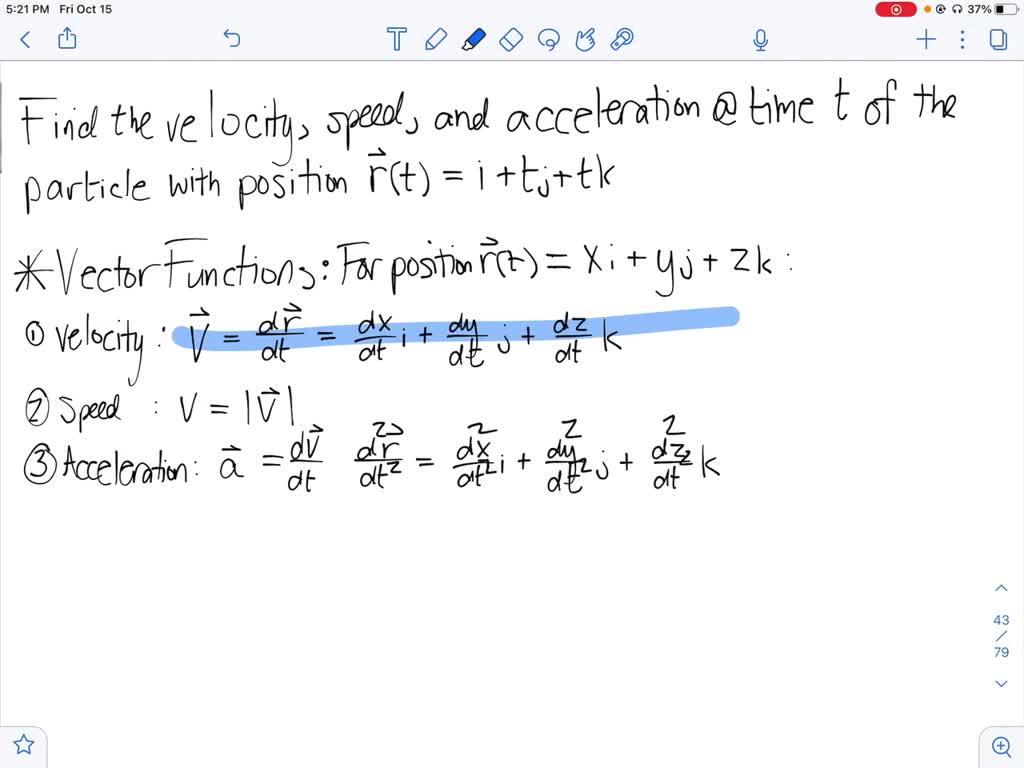 5:21 PM Fri Oct 15
37%
Find the velocity, speed, and acceleration @ time t of the
particle with position r⃗(t) = i + tj + tk
* Vector Functions: For position r⃗(t) = xi + yj + zk:
① Velocity: V⃗ = dr⃗/dt = dx/dt i + dy/dt j + dz/dt k
② Speed : V = |V⃗|
③ Acceleration: a⃗ = dv⃗/dt d²r⃗/dt² = d²x/dt² i + d²y/dt² j + d²z/dt² k
43
/
79